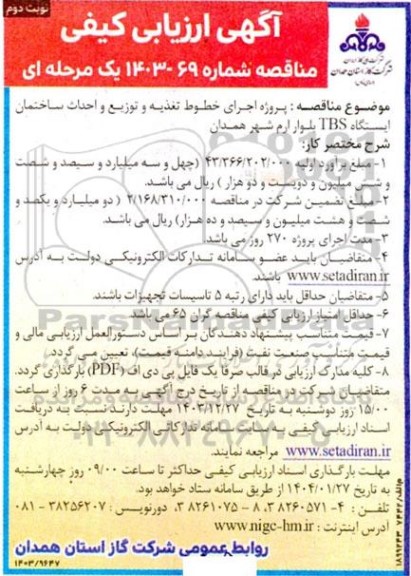 نوبت دوم
آگهی ارزیابی کیفی
مناقصه شماره ۶۹ -۱۴۰۳ یک مرحله ای
شرکت گاز استان همدان
موضوع مناقصه : پروژه اجرای خطوط تغذیه و توزیع و احداث ساختمان
ایستگاه TBS بلوار ارم شهر همدان
شرح مختصر کار:
۱- مبلغ برآورد اولیه ۴۳/۳۶۶/۲۰۲/۰۰۰ (چهل و سه میلیارد و سیصد و شصت
و شش میلیون و دویست و دو هزار ) ریال می باشد.
۲- مبلغ تضمین شرکت در مناقصه ۲/۱۶۸/۳۱۰/۰۰۰ ( دو میلیارد و یکصد و
شصت و هشت میلیون و سیصد و ده هزار) ریال می باشد.
۳- مدت اجرای پروژه ۲۷۰ روز می باشد.
۴- متقاضیان باید عضو سامانه تدارکات الکترونیکی دولت به آدرس
www.setadiran.ir باشند.
۵- متقاضیان حداقل باید دارای رتبه ۵ تاسیسات تجهیزات باشند.
۶- حداقل امتیاز ارزیابی کیفی مناقصه گران ۶۵ می باشد
۷- قیمت متناسب پیشنهاد دهندگان بر اساس دستورالعمل ارزیابی مالی و
قیمت متناسب صنعت نفت (فرایند دامنه قیمت) تعیین می گردد.
۸- کلیه مدارک ارزیابی در قالب صرفا یک فایل پی دی اف (PDF) بارگذاری گردد.
متقاضیان شرکت در مناقصه از تاریخ درج آگهی به مدت ۶ روز از ساعت
۱۵/۰۰ روز دوشنبه به تاریخ ۱۴۰۳/۱۲/۲۷ مهلت دارند نسبت به دریافت
اسناد ارزیابی کیفی به سایت سامانه تدارکاتی الکترونیکی دولت به آدرس
www.setadiran.ir مراجعه نمایند.
مهلت بارگذاری اسناد ارزیابی کیفی حداکثر تا ساعت ۰۹/۰۰ روز چهارشنبه
به تاریخ ۱۴۰۴/۰۱/۲۷ از طریق سامانه ستاد خواهد بود.
تلفن : ۴-۳۸۲۶۰۵۷۱ ، ۸-۳۸۲۶۱۰۷۵ دورنویس : ۳۸۲۵۶۲۰۷ - ۰۸۱
آدرس اینترنت : www.nigc-hm.ir
روابط عمومی شرکت گاز استان همدان
۱۴۰۳/۹۶۴۷
ParsNamadData
۰۲۱-۸۸۳۴۹۶۷۰-۵